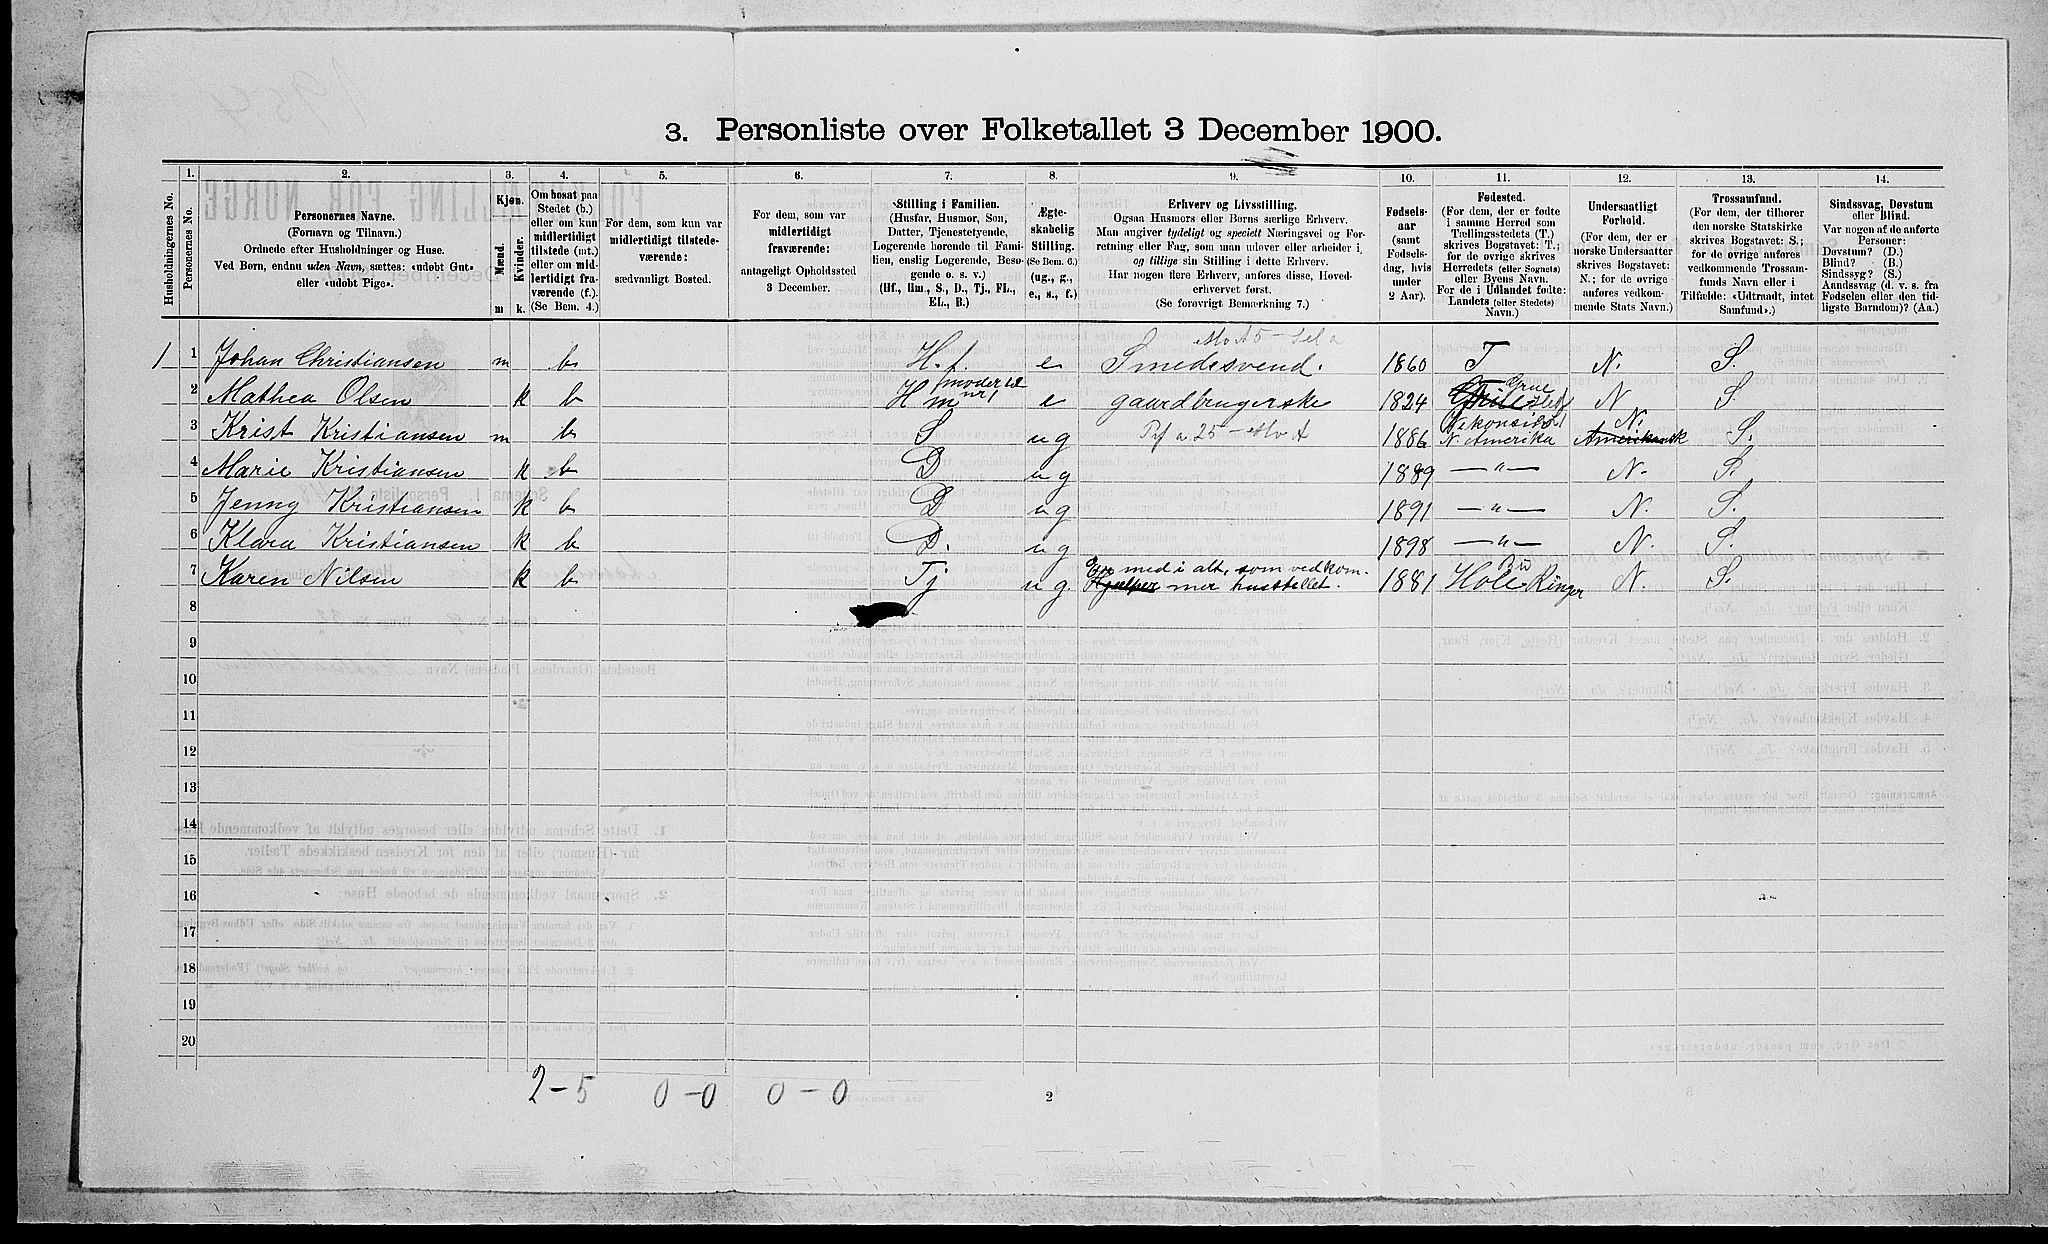 3. Personliste over Folketallet 3 December 1900.
Husholdningernes No.
1.
Personernes No.
2.
Personernes Navne.
(Fornavn og Tilnavn.)
Ordnede efter Husholdninger og Huse.
Ved Børn, endnu uden Navn, sættes: «udøbt Gut»
eller «udøbt Pige».
3.
Kjøn.
Mænd.
Kvinder.
m
k.
4.
Om bosat paa
Stedet (b.)
eller om kun
midlertidigt
tilstede (mt.)
eller om mid-
lertidigt fra-
værende (f.).
(Se Bem. 4.)
5.
For dem, som kun var
midlertidigt tilstede-
værende:
sædvanligt Bosted.
6.
For dem, som var
midlertidigt
fraværende:
antageligt Opholdssted
3 December.
7.
Stilling i Familien.
(Husfar, Husmor, Søn,
Datter, Tjenestetyende,
Logerende hørende til Fami-
lien, enslig Logerende, Besø-
gende o. s. v.)
(Hf., Hm., S., D., Tj., FL.,
EL., B.)
8.
Ægte-
skabelig
Stilling.
(Se Bem. 6.)
(ug., g.,
e., s., f.)
9.
Erhverv og Livsstilling.
Ogsaa Husmors eller Børns særlige Erhverv.
Man angiver tydeligt og specielt Næringsvei og For-
retning eller Fag, som man udøver eller arbeider i,
og tillige sin Stilling i dette Erhverv.
Har nogen flere Erhverv, anføres disse, Hoved-
erhvervet først.
(Se forøvrigt Bemærkning 7.)
10.
Fødsels-
aar
(samt
Fødsels-
dag, hvis
under
2 Aar).
11.
Fødested.
(For dem, der er fødte
i samme Herred som
Tællingsstedets (T.)
skrives Bogstavet: T.;
for de øvrige skrives
Herredets (eller Sognets)
eller Byens Navn.
For de i Udlandet fødte:
Landets (eller Stedets)
Navn.)
12.
Undersaatligt
Forhold.
(For dem, der er
norske Undersaatter
skrives Bogstavet:
N.; for de øvrige
anføres vedkom-
mende Stats Navn.)
13.
Trossamfund.
(For dem, der tilhører
den norske Statskirke
skrives Bogstavet: S.;
for de øvrige anføres
vedkommende Trossam-
funds Navn eller i
Tilfælde: «Udtraadt, intet
Samfund».)
14.
Sindssvag, Døvstum
eller Blind.
Var nogen af de anførte
Personer:
Døvstum? (D.)
Blind? (B.)
Sindssyg? (S.)
Aandssvag (d. v. s. fra
Fødselen eller den tid-
ligste Barndom)? (Aa.)
1 1 Johan Christiansen m b H.f. e Smedesvend. 1860 T N. S.
2 Mathea Olsen k b Hm moder til nr 1 e gaardbrugerske 1824 Grue N S
3 Krist Kristiansen m b S ug 1886 N. Amerika Amerikansk N. S.
4 Marie Kristiansen k b D ug 1889 —"— N. S.
5 Jenny Kristiansen k b D ug 1891 —"— N. S.
6 Klara Kristiansen k b D. ug 1898 —"— N. S.
7 Karen Nilsen k b Tj ug. med i alt, som vedkom-
Hjælper mer husstellet. 1881 Hole Ringer N. S.
8
9
10
11
12
13
14
15
16
17
18
19
20
2-5 0-0 0-0
2